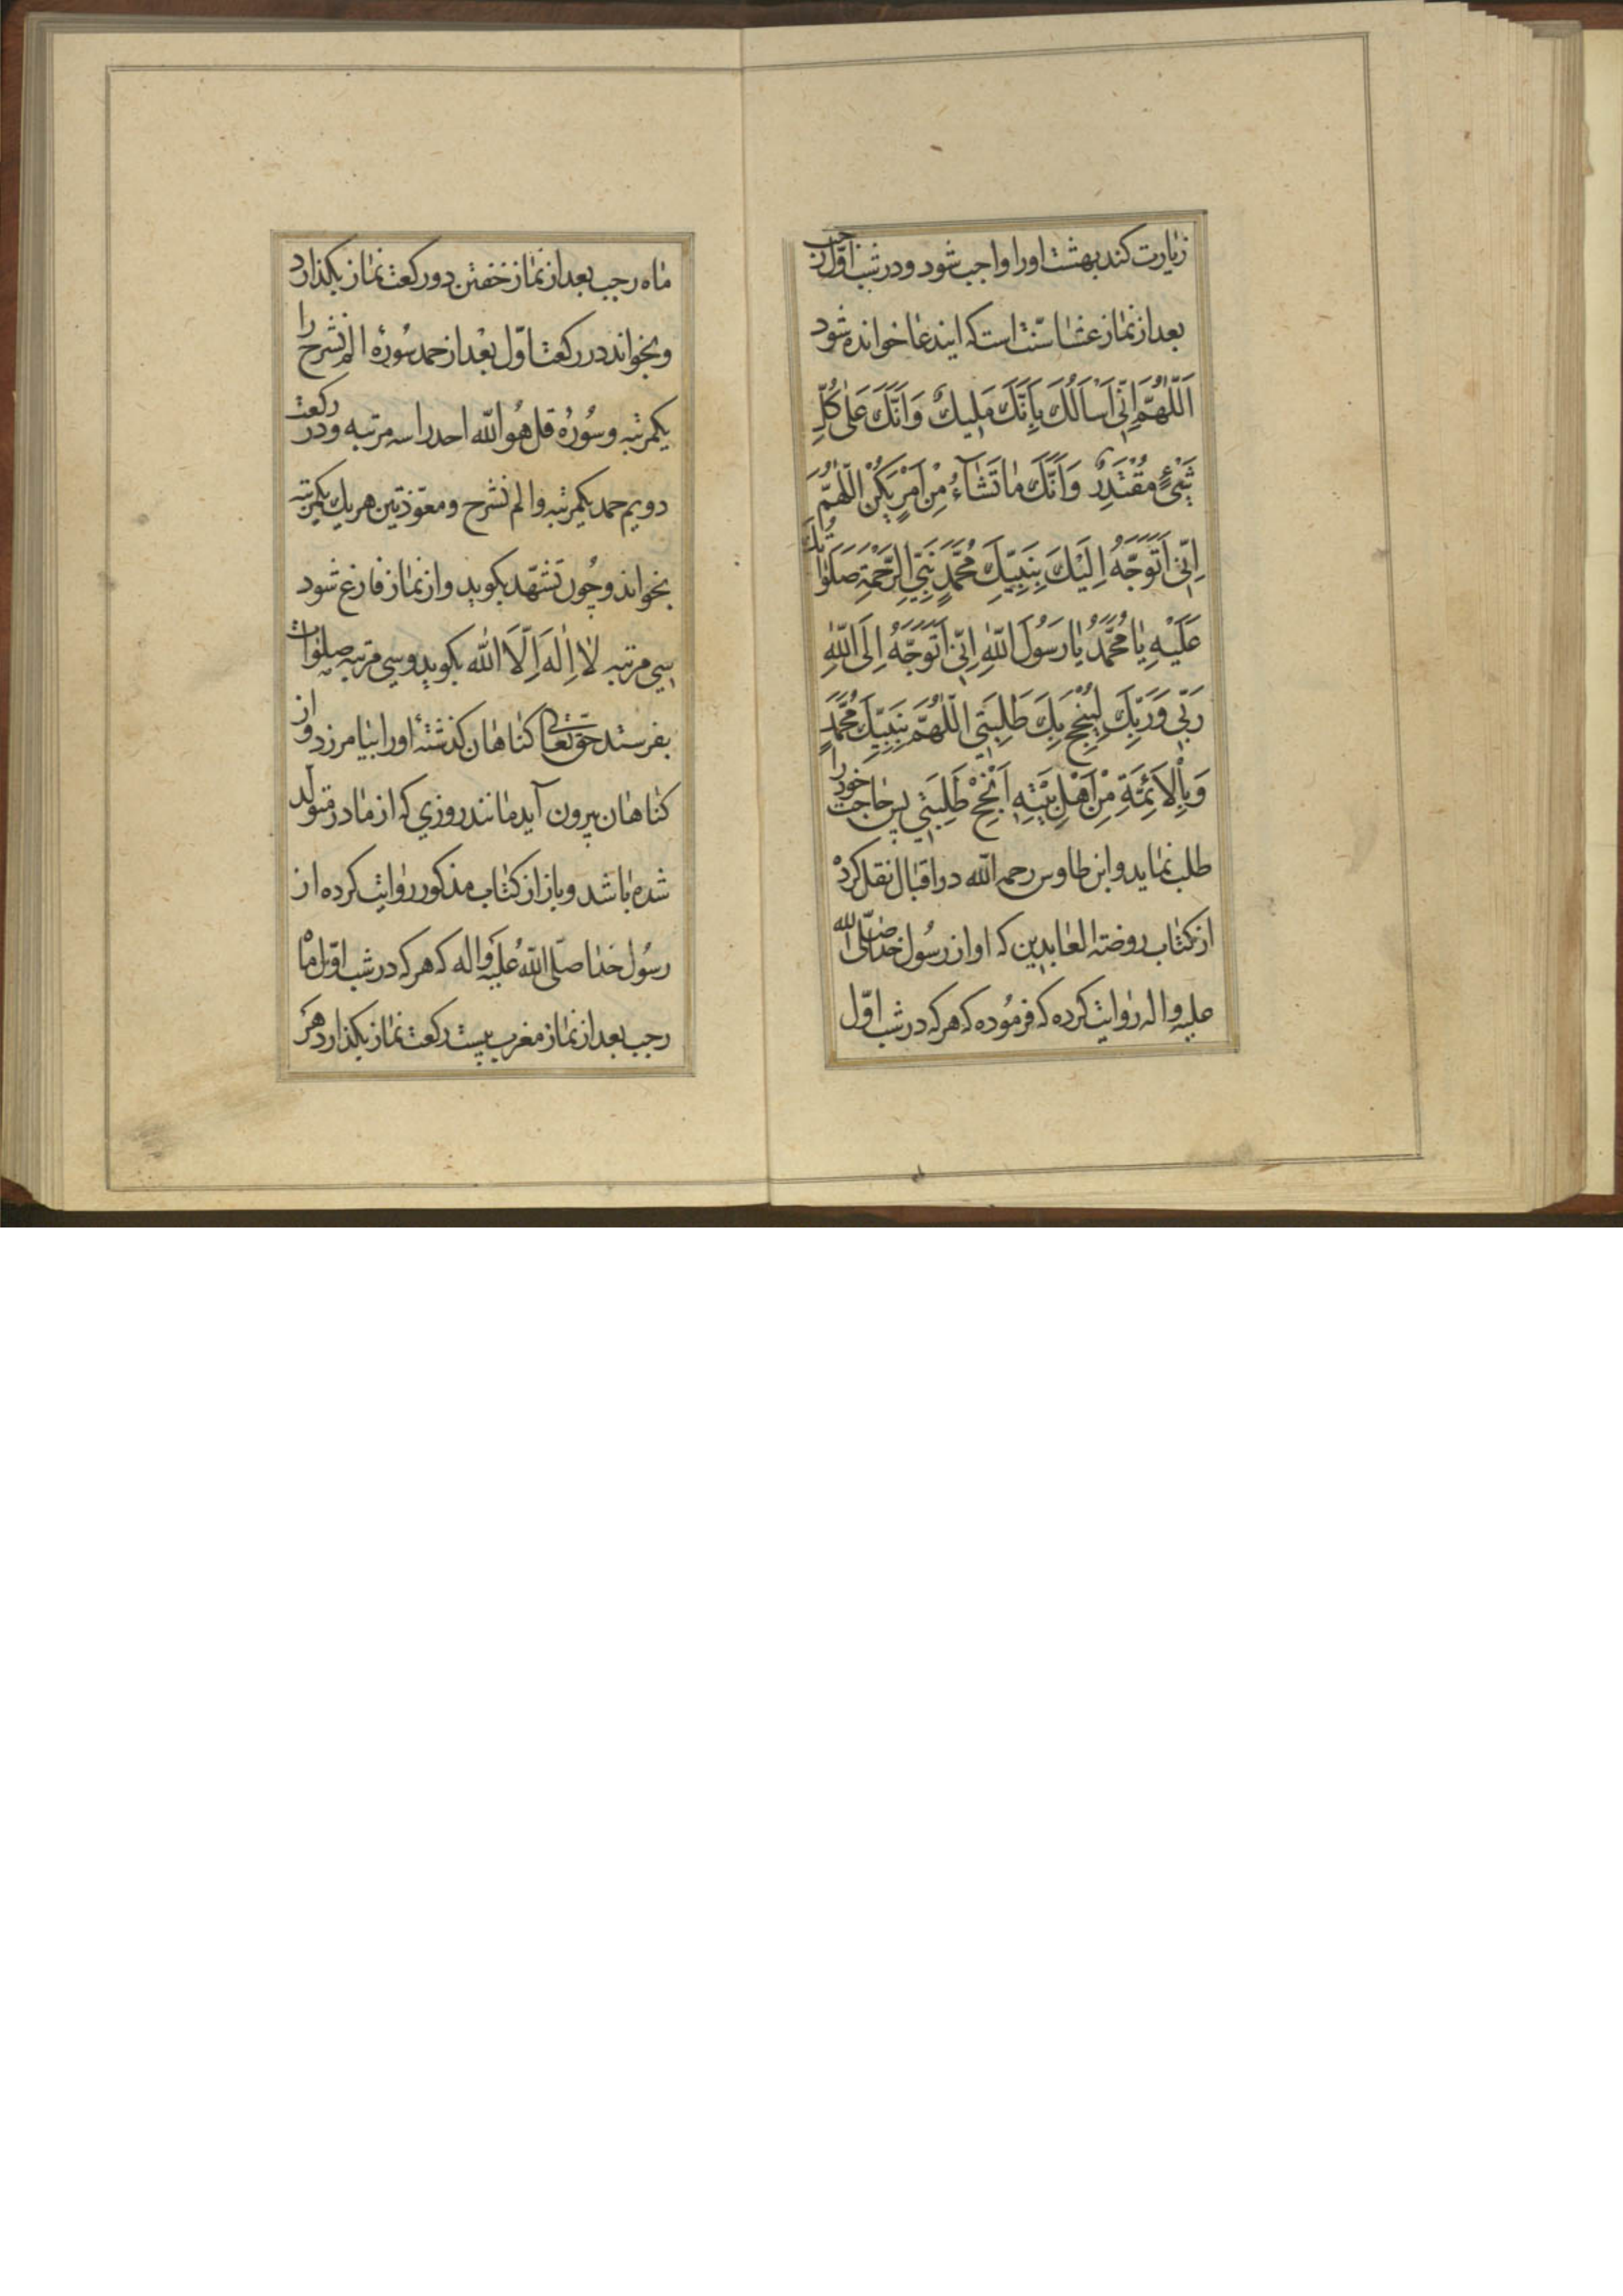 زیارت کند بهشت اورا واجب شود و در شب اوّل رجب
بعد از نماز عشا سنّت است که ایندعا خوانده شود
اَللّٰهُمَّ اِنّي اَسْاَلُكَ بِاَنَّكَ مَلِيكٌ وَاَنَّكَ عَلىٰ كُلِّ
شَيْءٍ مُقْتَدِرٌ وَاَنَّكَ مٰا تَشٰآءُ مِنْ اَمْرٍ يَكُنْ اَللّٰهُمَّ
اِنّي اَتَوَجَّهُ اِلَيْكَ بِنَبِيِّكَ مُحَمَّدٍ نَبِيِّ الرَّحْمَةِ صَلَوٰاتُكَ
عَلَيْهِ يٰا مُحَمَّدُ يٰا رَسُولَ اللّٰهِ اِنّي اَتَوَجَّهُ اِلَى اللّٰهِ
رَبّي وَرَبِّكَ لِيُنْجِحَ بِكَ طَلِبَتي اَللّٰهُمَّ بِنَبِيِّكَ مُحَمَّدٍ
وَبِالْاَئِمَّةِ مِنْ اَهْلِ بَيْتِهِ اَنْجِحْ طَلِبَتي پس حاجت خود را
طلب نماید و ابن طاوس رحمه اللّه در اقبال نقل کرده
از کتاب روضة العابدین که او از رسُول خدا صلّی اللّه
علیه و اله روایت کرده که فرمُوده که هر که در شب اوّل
ماه رجب بعد از نماز خفتن دو رکعت نماز بکذارد
و بخواند در رکعت اوّل بعد از حمد سُورهٔ الم نشرح را
یکمرتبه و سُورهٔ قل هُو اللّه احد را سه مرتبه و در رکعت
دویم حمد یکمرتبه و الم نشرح و معوّذتین هریك یکمرتبه
بخواند و چُون تشهّد بکوید و از نماز فارغ شود
سی مرتبه لا اِلٰهَ اِلَّا اللّٰه بکوید و سی مرتبه صلوات
بفرستد حق تعالی کناهان کذشتهٔ اورا بیامرزد و از
کناهان بیرون آید مانند روزی که از مادر متولّد
شده باشد و باز از کتاب مذکور روایت کرده از
رسُول خدا صلّی اللّه علیه و اله که هر که در شب اوّل ماه
رجب بعد از نماز مغرب بیست رکعت نماز بکذارد هر